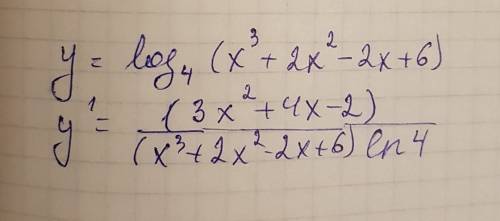 y = log₄ (x³ + 2x² - 2x + 6)
y' = (3x² + 4x - 2) / (x³ + 2x² - 2x + 6) ln 4